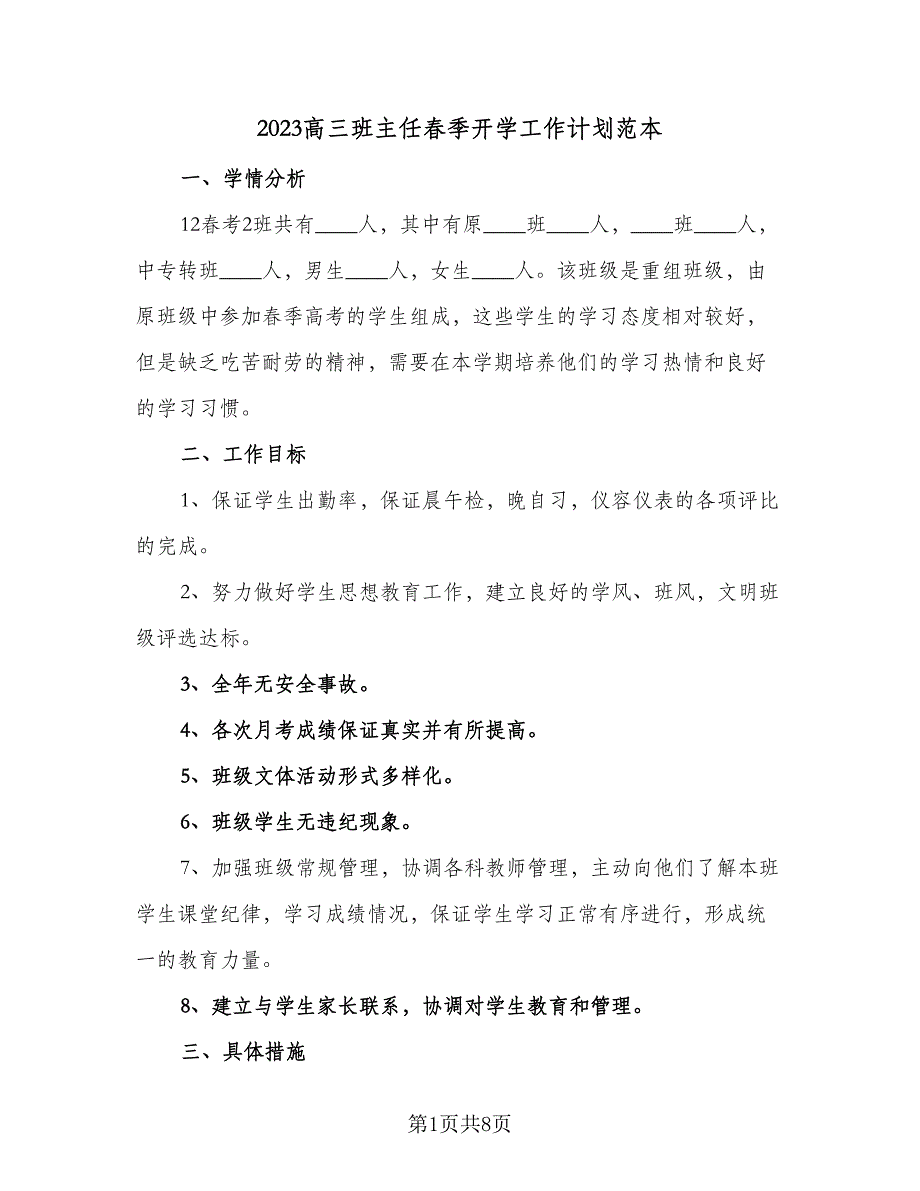 2023高三班主任春季开学工作计划范本
一、学情分析
12春考2班共有____人，其中有原____班____人，____班____人，
中专转班____人，男生____人，女生____人。该班级是重组班级，由
原班级中参加春季高考的学生组成，这些学生的学习态度相对较好，
但是缺乏吃苦耐劳的精神，需要在本学期培养他们的学习热情和良好
的学习习惯。
二、工作目标
1、保证学生出勤率，保证晨午检，晚自习，仪容仪表的各项评比
的完成。
2、努力做好学生思想教育工作，建立良好的学风、班风，文明班
级评选达标。
3、全年无安全事故。
4、各次月考成绩保证真实并有所提高。
5、班级文体活动形式多样化。
6、班级学生无违纪现象。
7、加强班级常规管理，协调各科教师管理，主动向他们了解本班
学生课堂纪律，学习成绩情况，保证学生学习正常有序进行，形成统
一的教育力量。
8、建立与学生家长联系，协调对学生教育和管理。
三、具体措施
第1页共8页